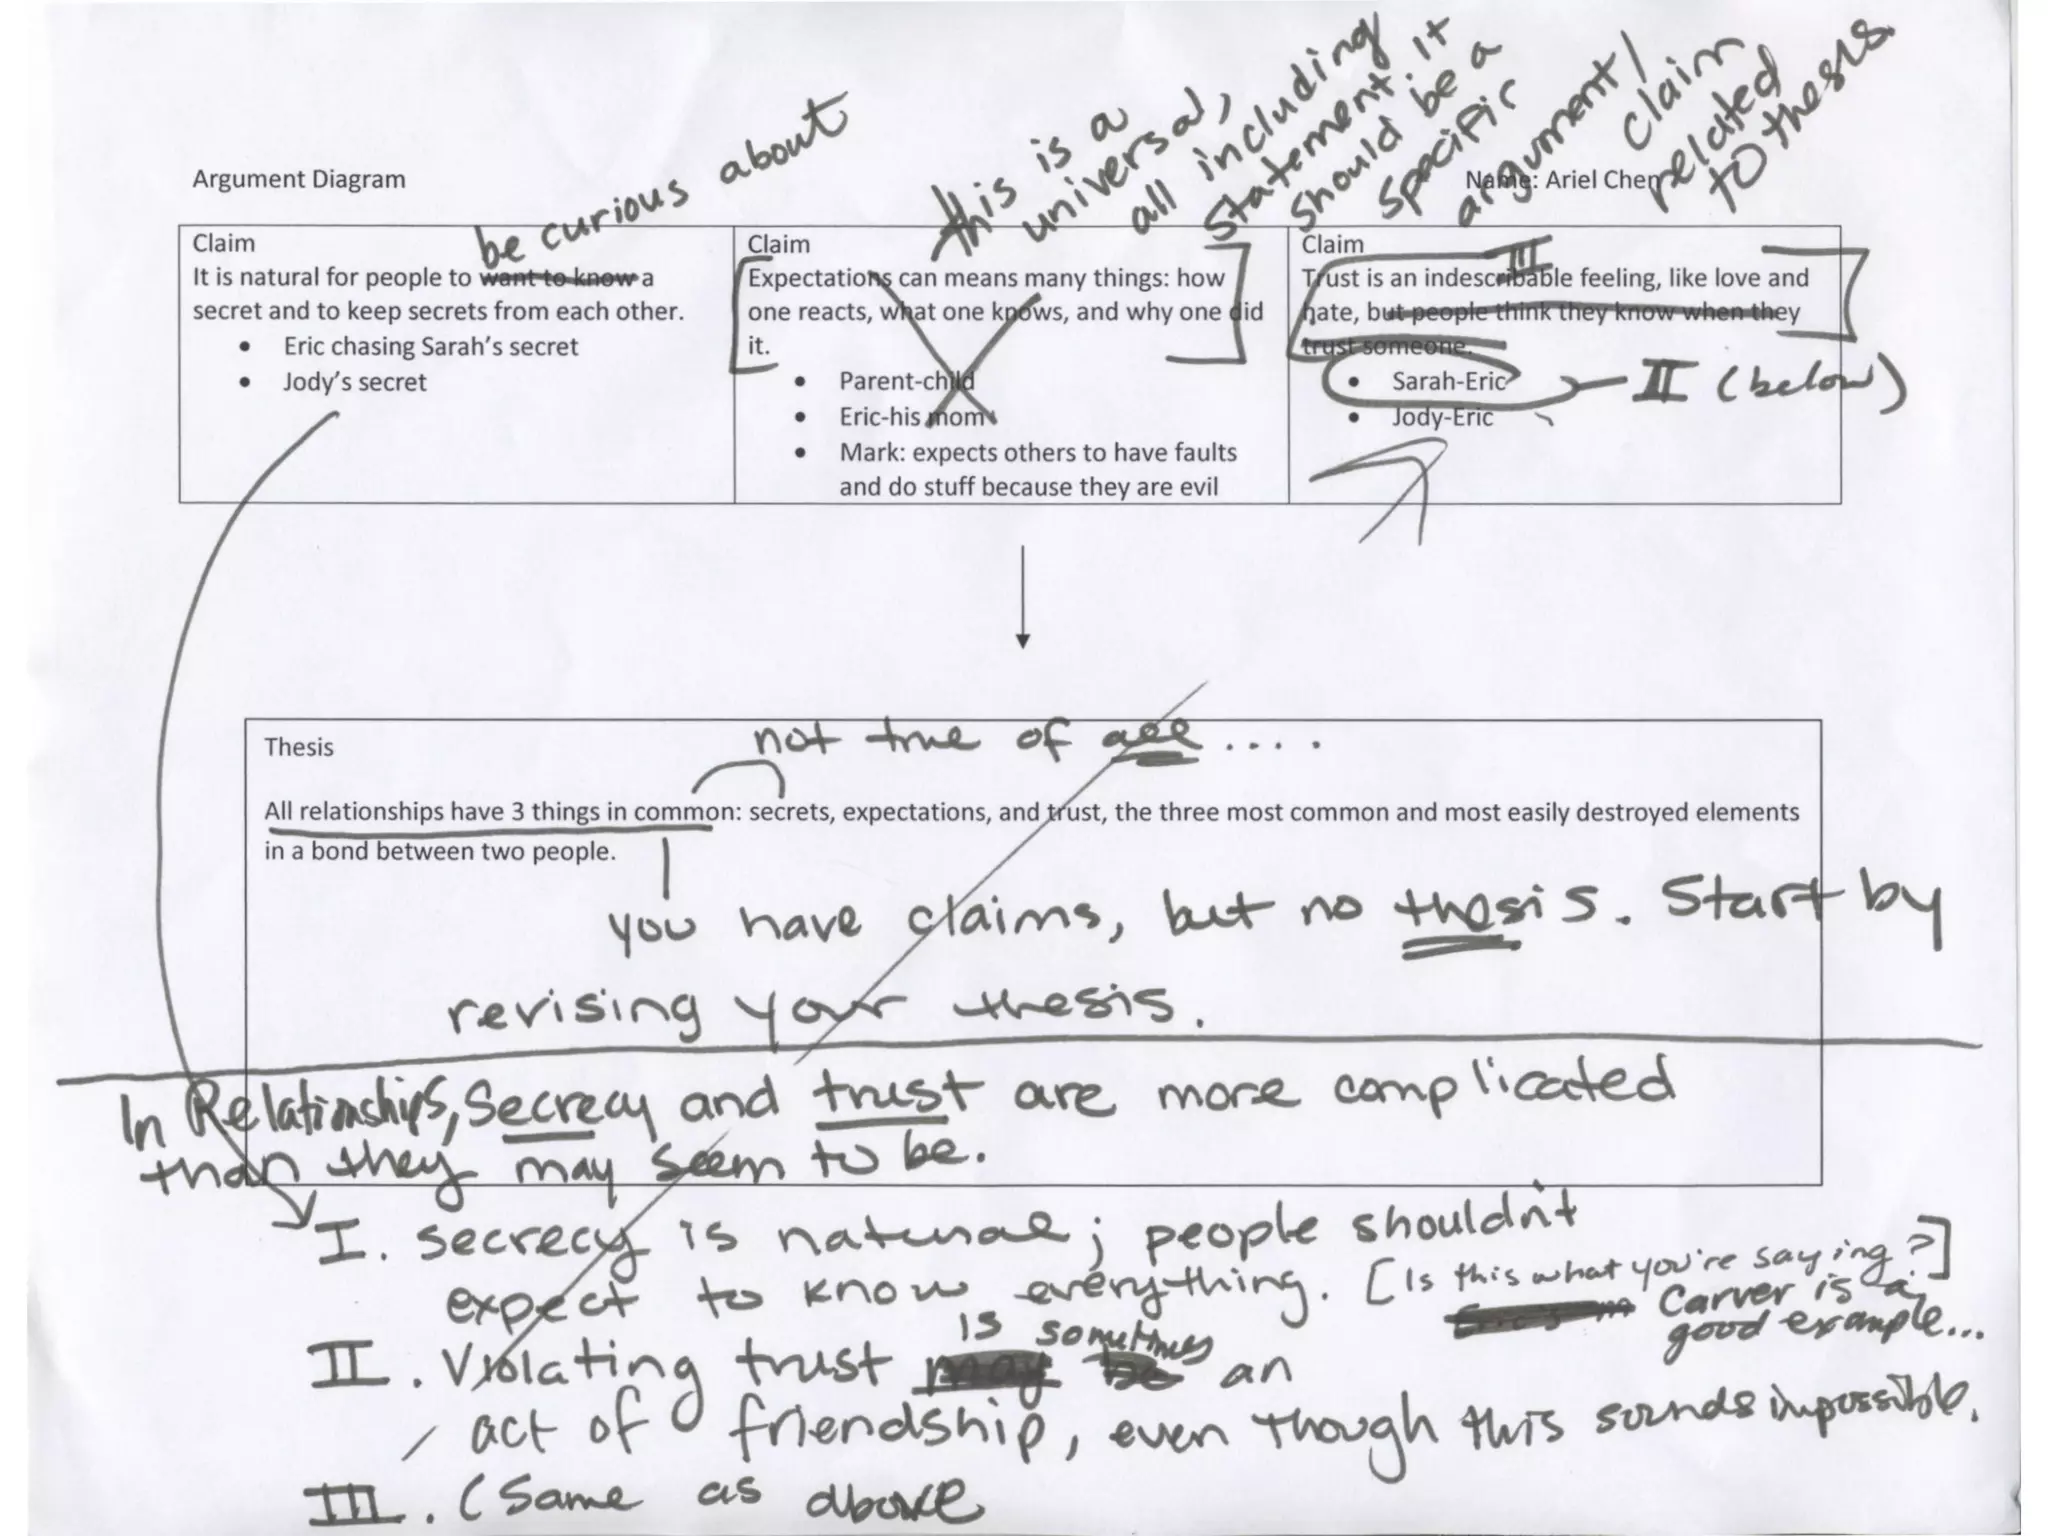 be curious about
this is a
universal,
all including
statement. it
should be a
specific
argument/
claim
related
to thesis.
Argument Diagram
Name: Ariel Chen
Claim
It is natural for people to want to know a
secret and to keep secrets from each other.
• Eric chasing Sarah's secret
• Jody's secret
Claim
Expectations can means many things: how
one reacts, what one knows, and why one did
it.
• Parent-child
• Eric-his mom
• Mark: expects others to have faults
and do stuff because they are evil
Claim
III
Trust is an indescribable feeling, like love and
hate, but people think they know when they
trust someone.
• Sarah-Eric
II (below)
• Jody-Eric
Thesis
not true of all ....
All relationships have 3 things in common: secrets, expectations, and trust, the three most common and most easily destroyed elements
in a bond between two people.
you have claims, but no thesis. Start by
revising your thesis.
In Relationships, secrecy and trust are more complicated
than they may seem to be.
I. secrecy is natural; people shouldn't
expect to know everything. [Is this what you're saying?]
Carver is a
good example...
is sometimes
II. Violating trust may be an
act of friendship, even though this sounds impossible.
III. (Same as above